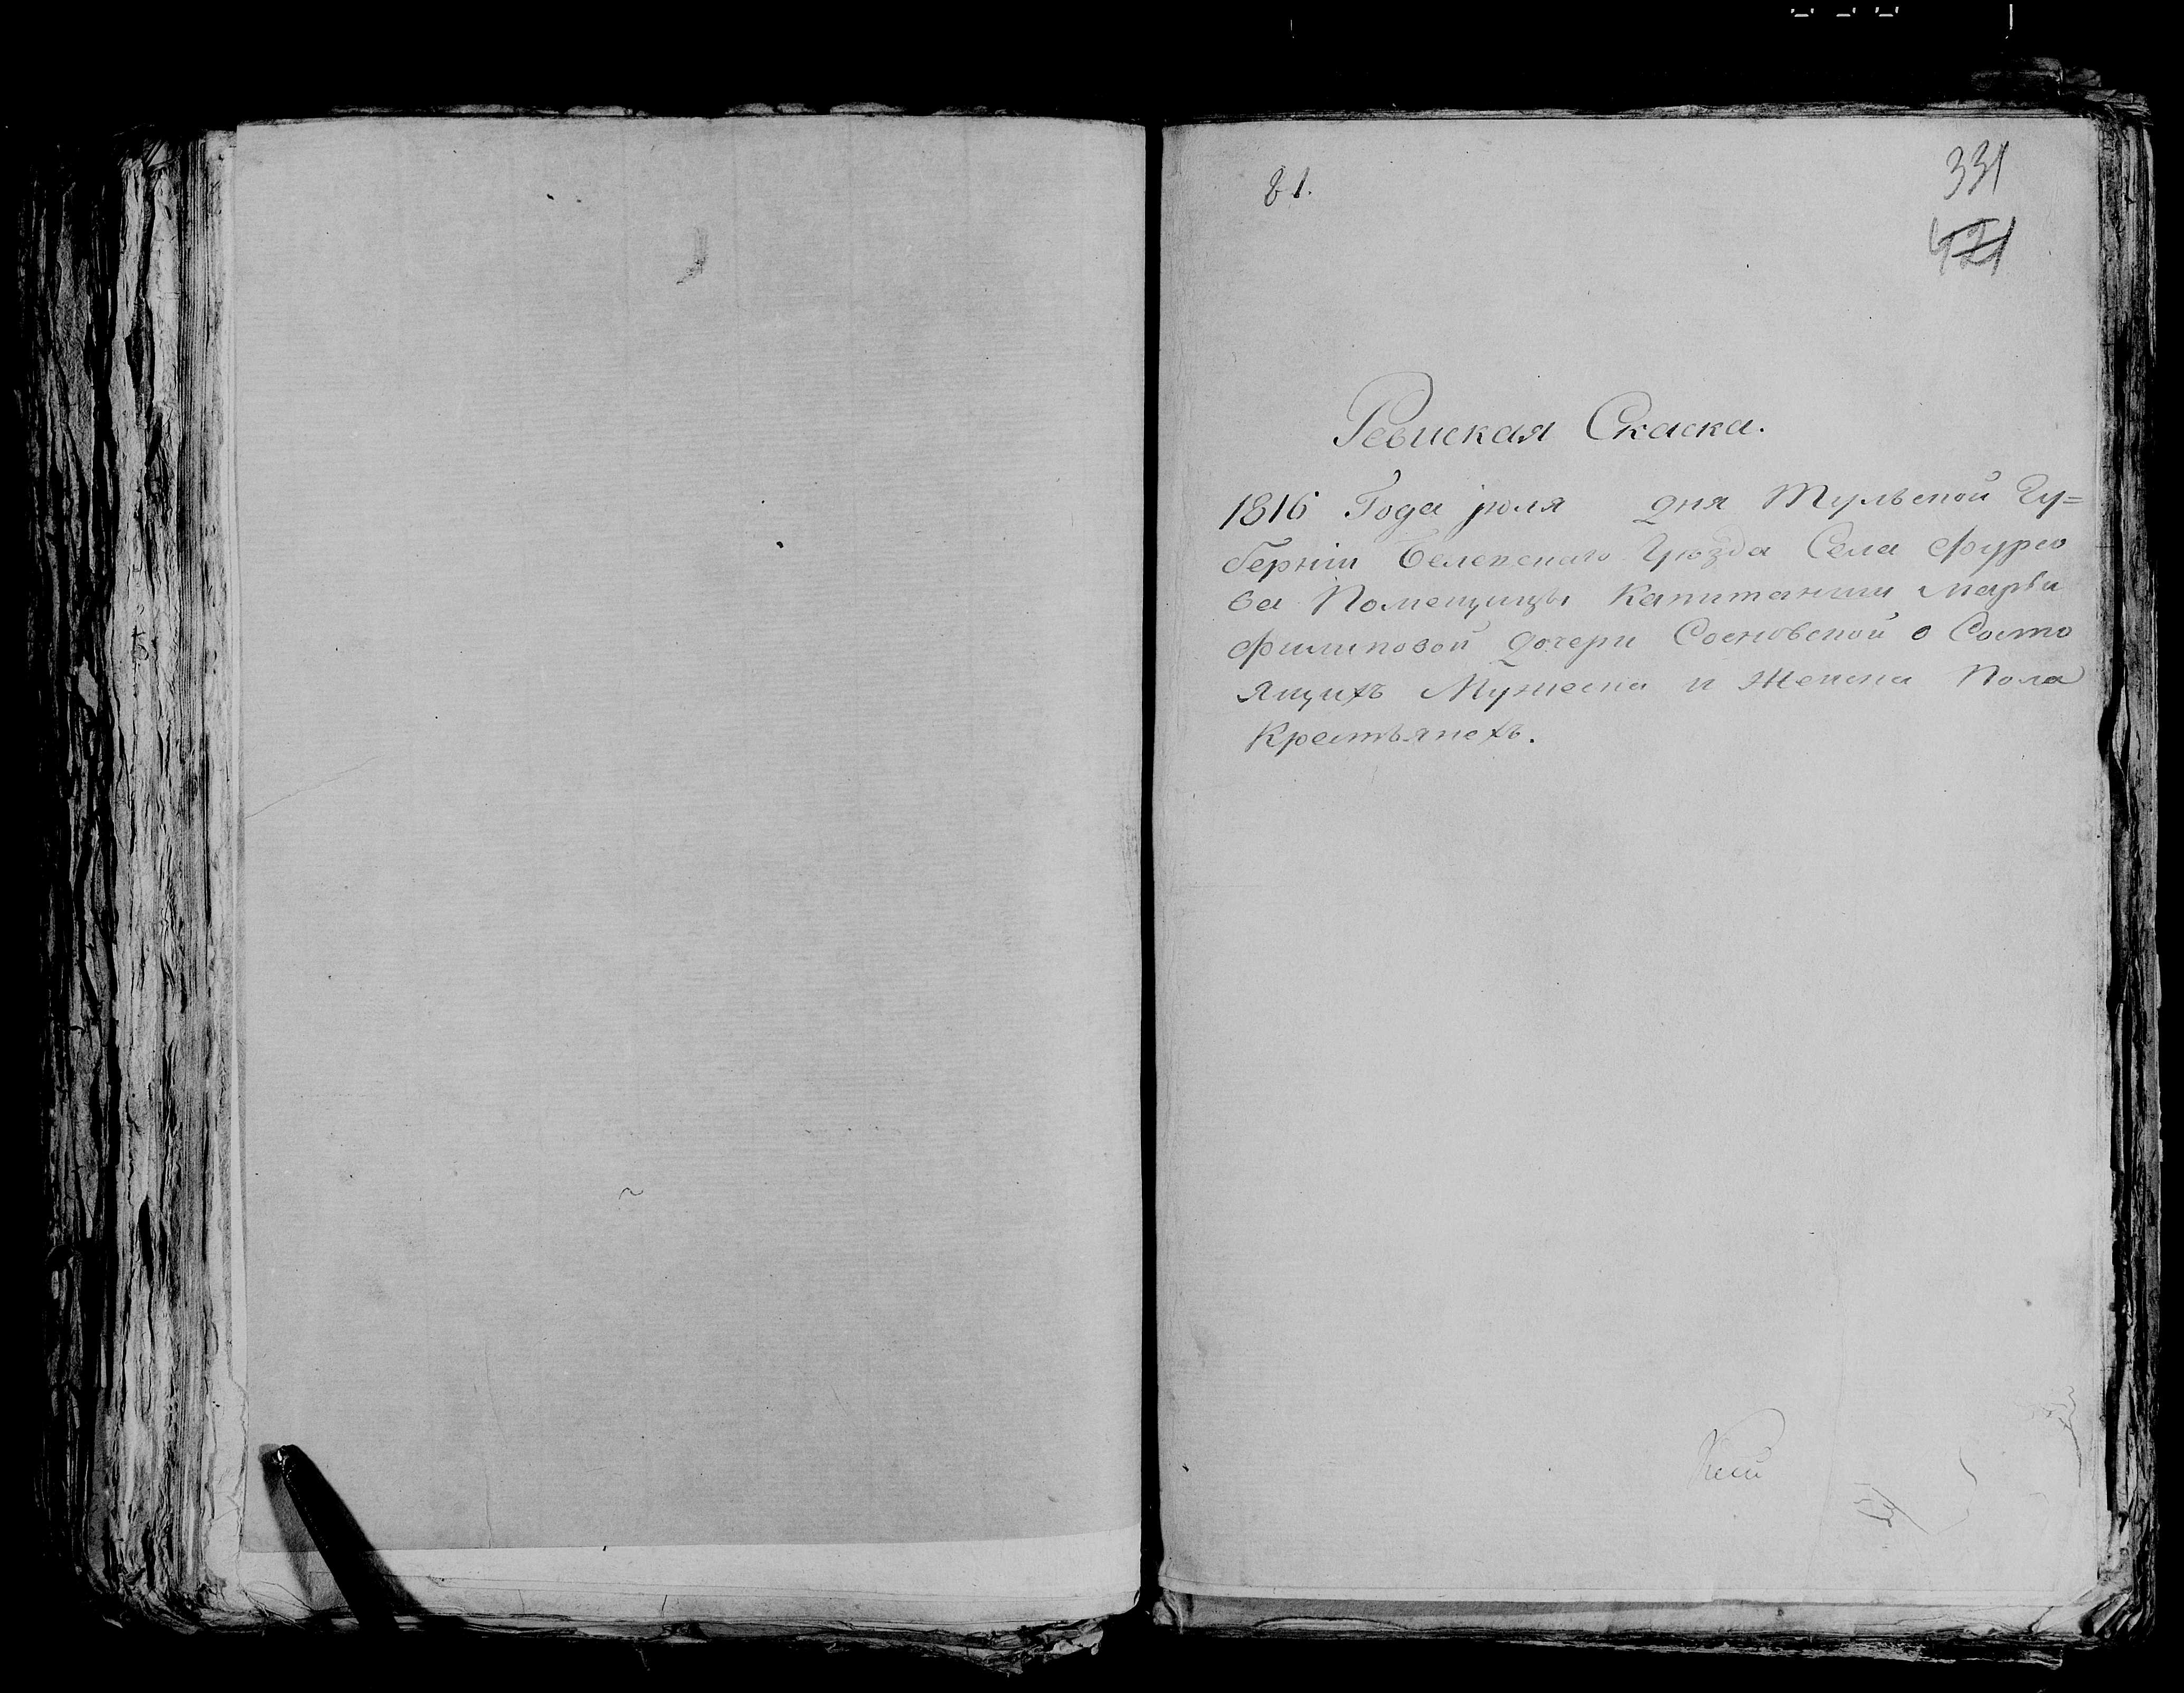 81.
331
421
Ревиская Скаска.
1816 Года июля дня Тульской Гу=
берніи Белевскаго Уезда Села Фурсо
ва Помещицы Капитанши Марьи
Филиповой дочери Сосновской о Состо
ящихъ Мужеска и Женска Пола
Крестьянехъ.